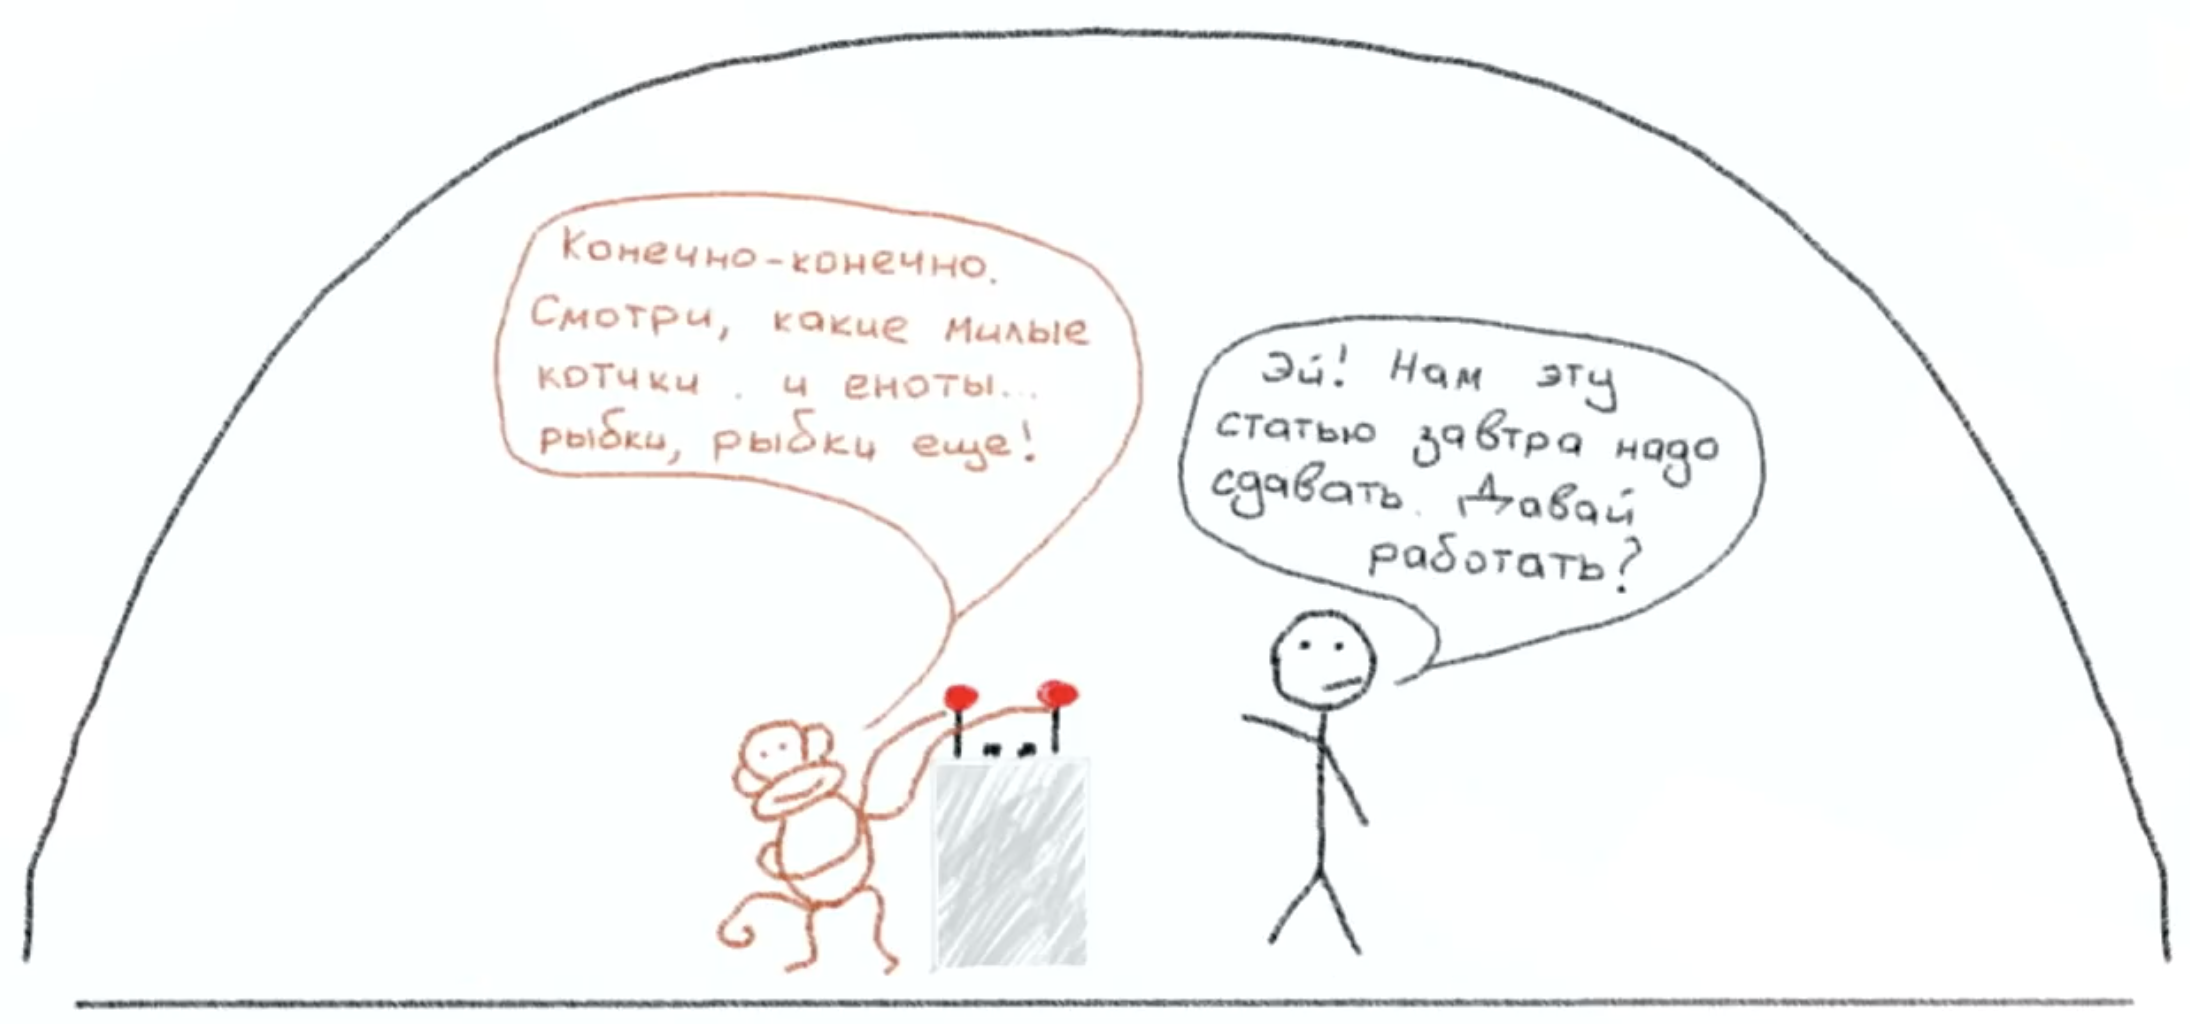 Конечно-конечно.
Смотри, какие милые
котики . и еноты...
рыбки, рыбки еще!
Эй! Нам эту
статью завтра надо
сдавать. Давай
работать?